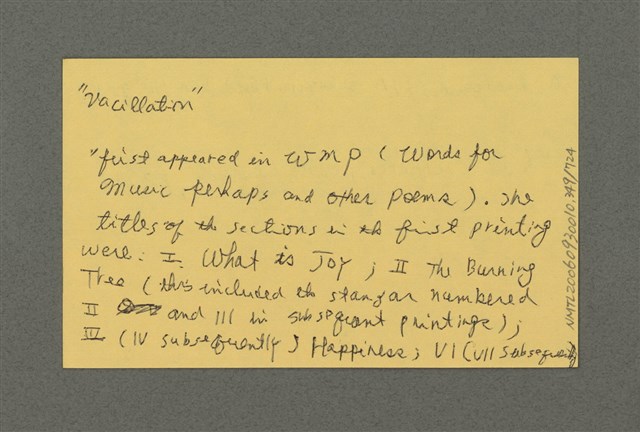 "Vacillation"
"first appeared in WMP (Words for
Music Perhaps and other poems). The
titles of the sections in the first printing
were: I. What is Joy; II The Burning
Tree (this included the stanzas numbered
II and III in subsequent printings);
III (IV subsequently) Happiness; VI (VII subsequently
NMTL20060920010.749/724